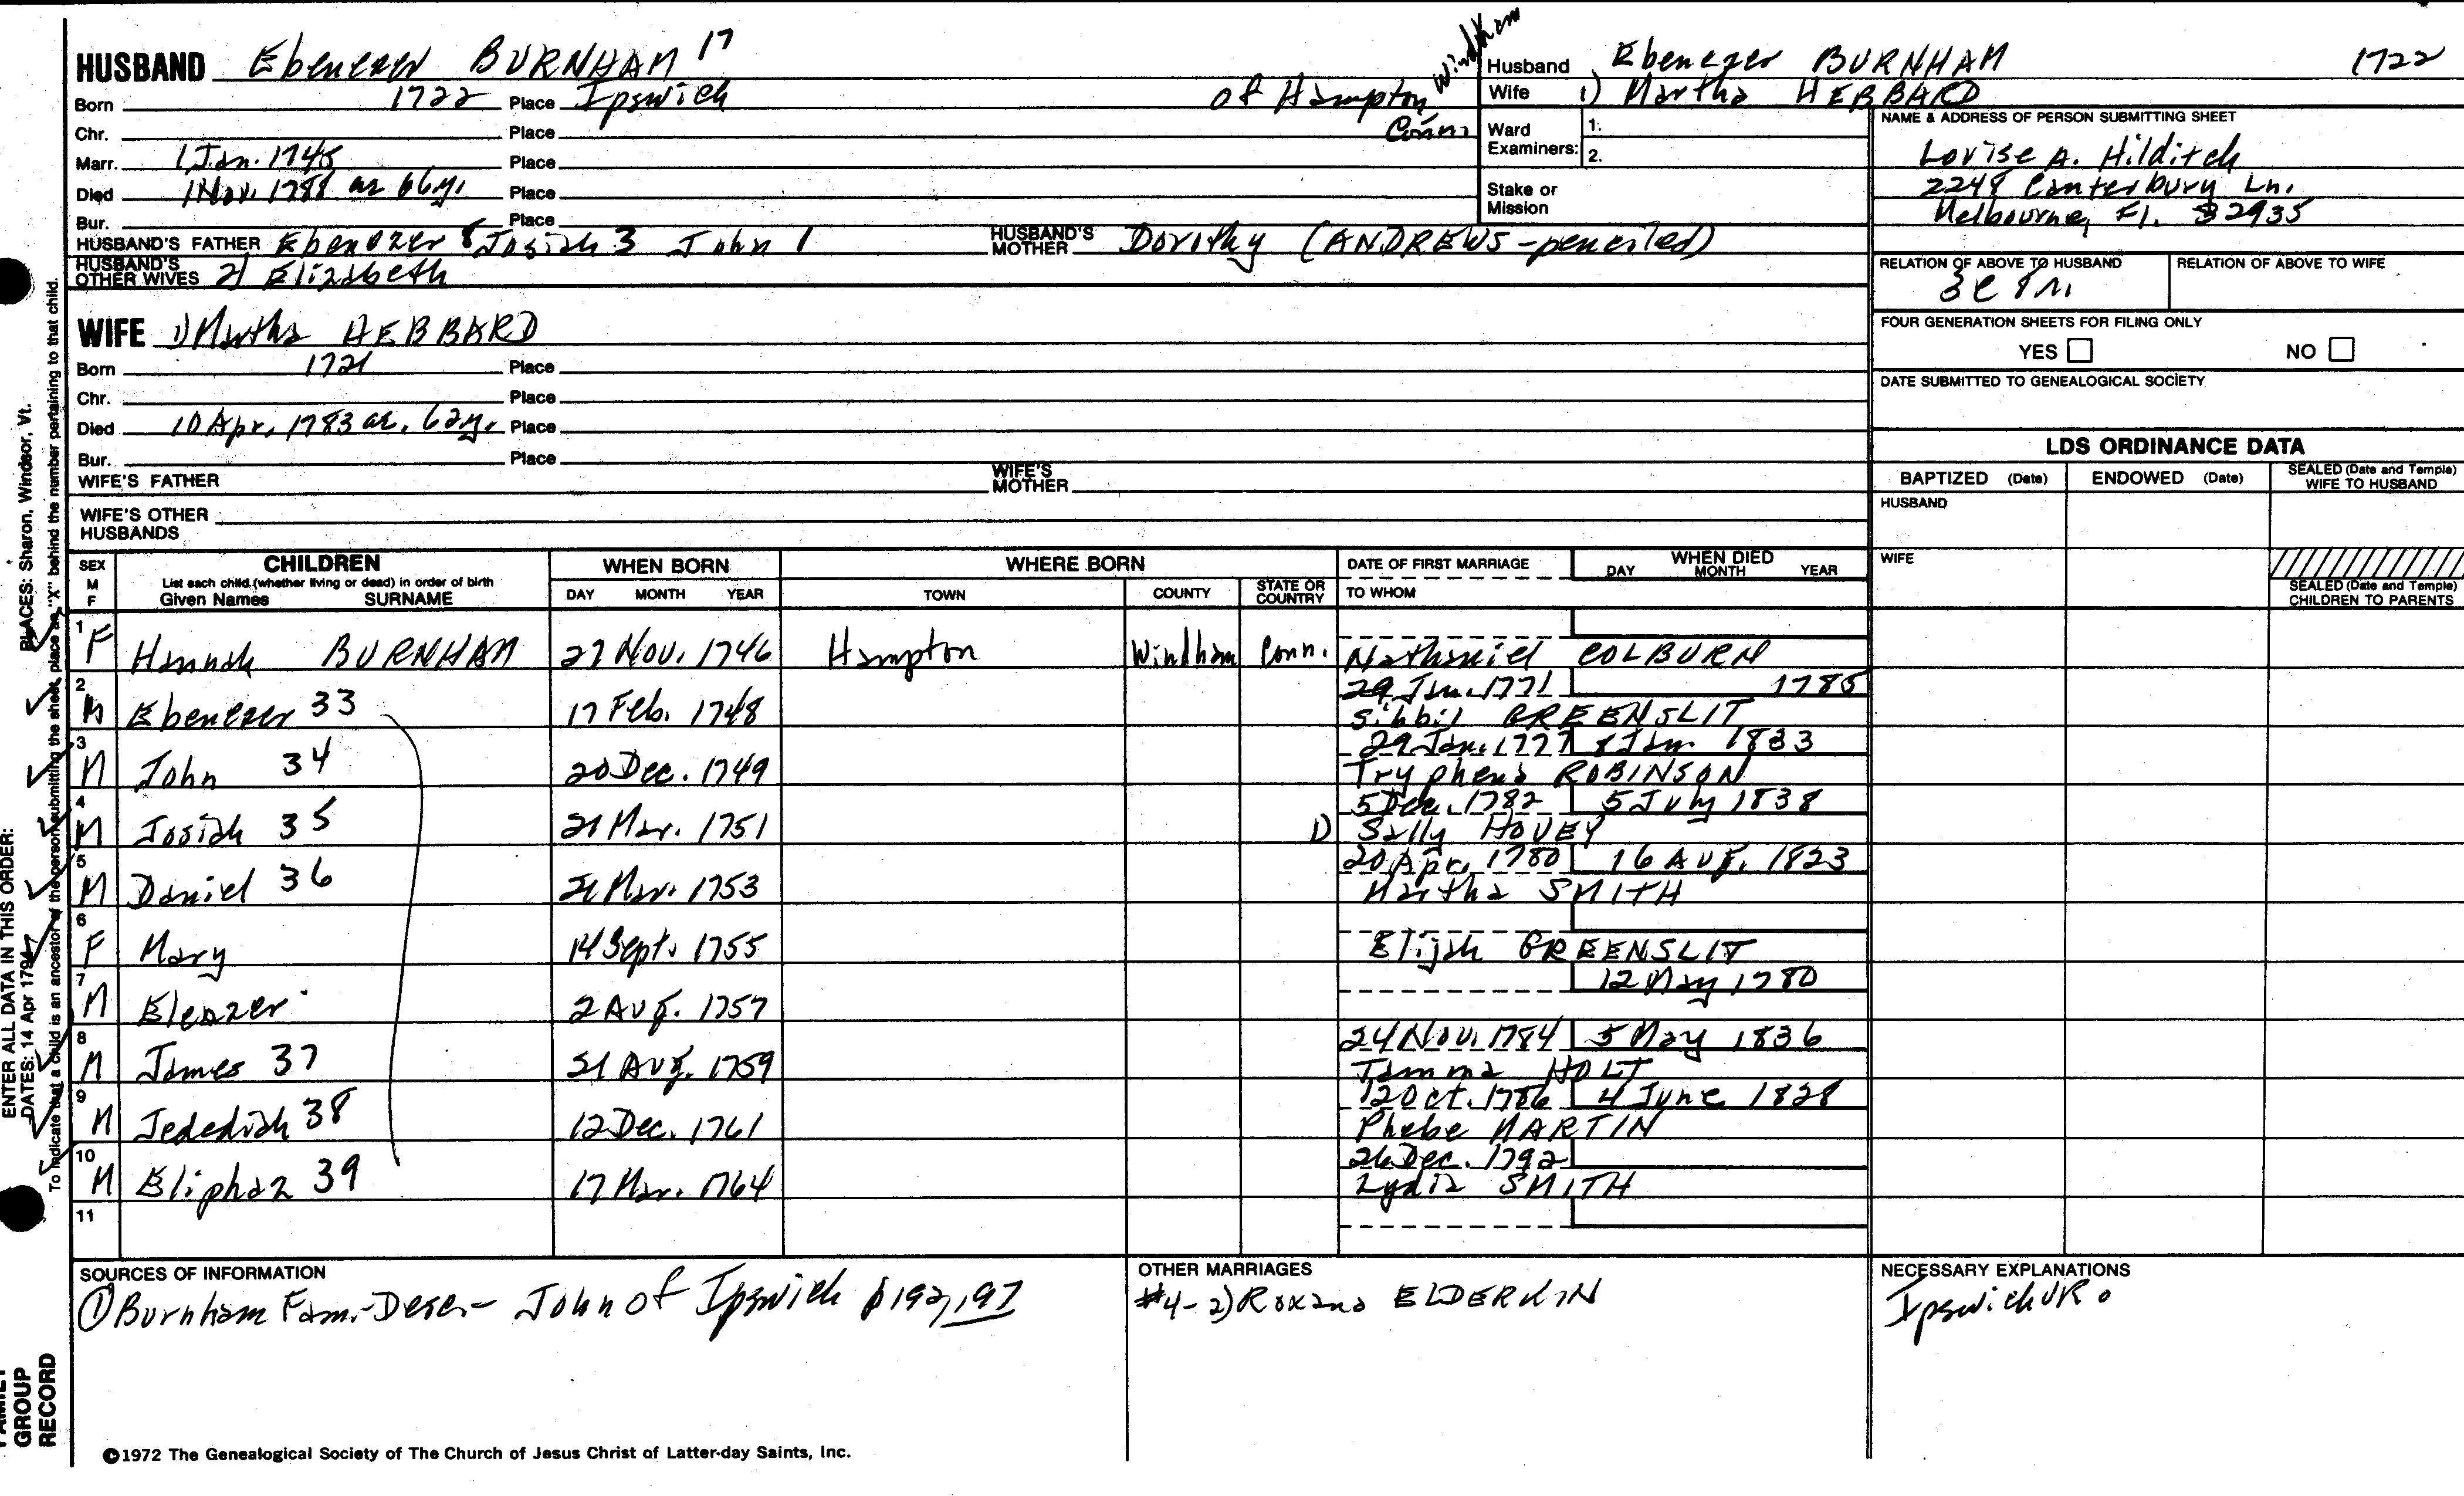 HUSBAND Ebenezer BURNHAM 17
Born 1722 Place Ipswich of Hampton Windham Conn.
Chr. Place
Marr. 1 Jan. 1745 Place
Died 1 Nov. 1788 ae 66y. Place
Bur. Place
HUSBAND'S FATHER Ebenezer 8 Josiah 3 John 1 HUSBAND'S MOTHER Dorothy (ANDREWS-penciled)
HUSBAND'S OTHER WIVES 2) Elizabeth
WIFE 1) Martha HEBBARD
Born 1721 Place
Chr. Place
Died 10 Apr. 1783 ae. 62y. Place
Bur. Place
WIFE'S FATHER WIFE'S MOTHER
WIFE'S OTHER HUSBANDS
Husband Ebenezer BURNHAM 1722
Wife 1) Martha HEBBARD
Ward Examiners: 1.
2.
Stake or Mission
NAME & ADDRESS OF PERSON SUBMITTING SHEET
Louise A. Hilditch
2248 Canterbury Ln.
Melbourne, Fl. 32935
RELATION OF ABOVE TO HUSBAND RELATION OF ABOVE TO WIFE
3C
FOUR GENERATION SHEETS FOR FILING ONLY
YES NO
DATE SUBMITTED TO GENEALOGICAL SOCIETY
LDS ORDINANCE DATA
BAPTIZED (Date) ENDOWED (Date) SEALED (Date and Temple) WIFE TO HUSBAND
HUSBAND
WIFE
SEALED (Date and Temple) CHILDREN TO PARENTS
SEX M F CHILDREN WHEN BORN WHERE BORN DATE OF FIRST MARRIAGE WHEN DIED
List each child (whether living or dead) in order of birth
Given Names SURNAME DAY MONTH YEAR TOWN COUNTY STATE OR COUNTRY TO WHOM DAY MONTH YEAR
1 F Hannah BURNHAM 27 Nov. 1746 Hampton Windham Conn. Nathaniel COLBURN
29 Jan. 1771 1785
2 M Ebenezer 33 17 Feb. 1748 Sibbil GREENSLIT
29 Jan. 1777 8 Jan. 1833
3 M John 34 20 Dec. 1749 Tryphena ROBINSON
5 Dec. 1782 5 July 1838
4 M Josiah 35 21 Mar. 1751 1) Sally HOVEY
20 Apr. 1780 16 Aug. 1823
5 M Daniel 36 21 Mar. 1753 Martha SMITH
6 F Mary 14 Sept. 1755 Elijah GREENSLIT
12 May 1780
7 M Eleazer 2 Aug. 1757
24 Nov. 1784 5 May 1836
8 M James 37 21 Aug. 1759 Tamma HOLT
12 Oct. 1786 4 June 1828
9 M Jedediah 38 12 Dec. 1761 Phebe MARTIN
26 Dec. 1792
10 M Eliphaz 39 17 Mar. 1764 Lydia SMITH
11
SOURCES OF INFORMATION
① Burnham Fam.-Desc.- John of Ipswich p 192, 197
OTHER MARRIAGES
#4-2) Roxana ELDERKIN
NECESSARY EXPLANATIONS
Ipswich VR.
©1972 The Genealogical Society of The Church of Jesus Christ of Latter-day Saints, Inc.
ENTER ALL DATA IN THIS ORDER:
DATES: 14 Apr 1794 PLACES: Sharon, Windsor, Vt.
To indicate that a child is an ancestor of the person submitting the sheet, place an "X" behind the number pertaining to that child.
FAMILY GROUP RECORD